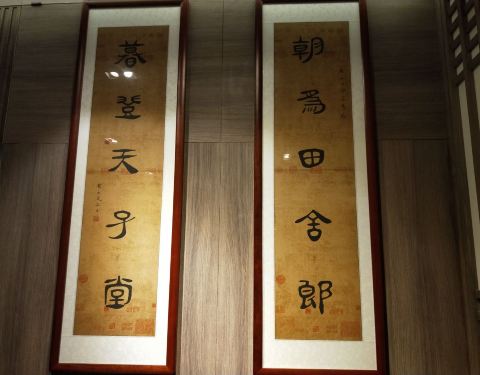 朝為田舍郎
暮登天子堂